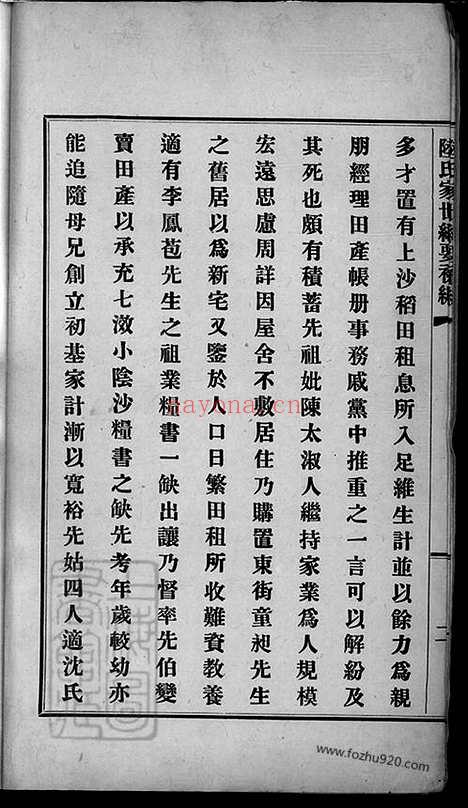 陸氏家世纂要補編
二
多才置有上沙稻田租息所入足維生計並以餘力為親
朋經理田產帳册事務戚黨中推重之一言可以解紛及
其死也頗有積蓄先祖妣陳太淑人繼持家業為人規模
宏遠思慮周詳因屋舍不敷居住乃購置東街童昶先生
之舊居以為新宅又鑒於人口日繁田租所收難資教養
適有李鳳苞先生之祖業糧書一缺出讓乃督率先伯變
賣田產以承充七滧小陰沙糧書之缺先考年歲較幼亦
能追隨母兄創立初基家計漸以寬裕先姑四人適沈氏
nayona.cn
www.fozhu920.com